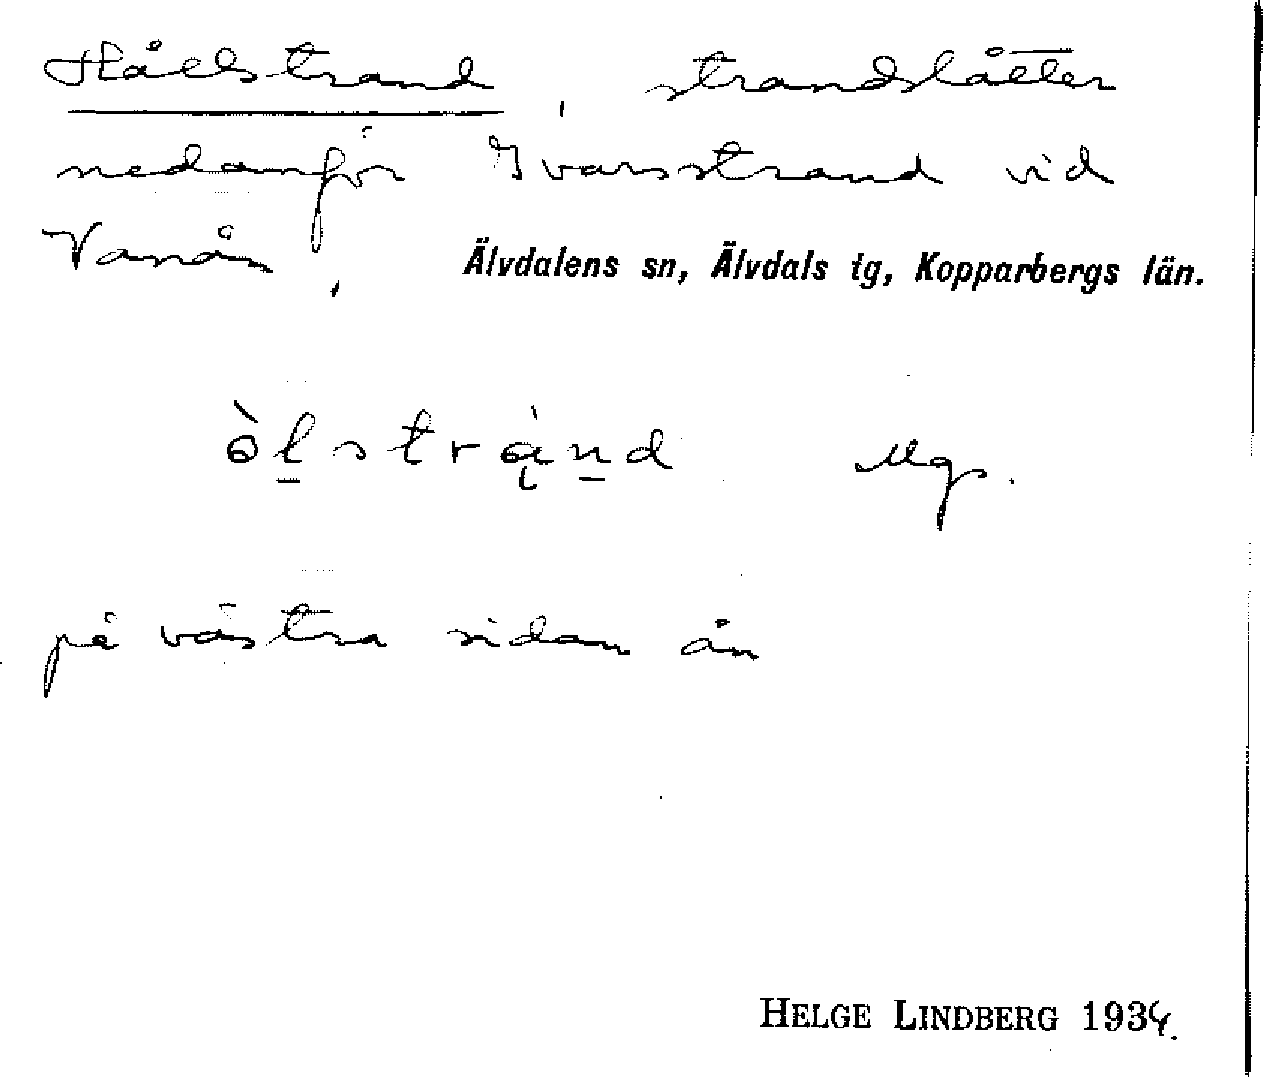 Hålstrand, strandslåtter
nedanför Ivarsstrand vid
Vanån, Älvdalens sn, Älvdals tg, Kopparbergs län.
òl̠strą̀n̠d Mgs.
på västra sidan ån
HELGE LINDBERG 1934.